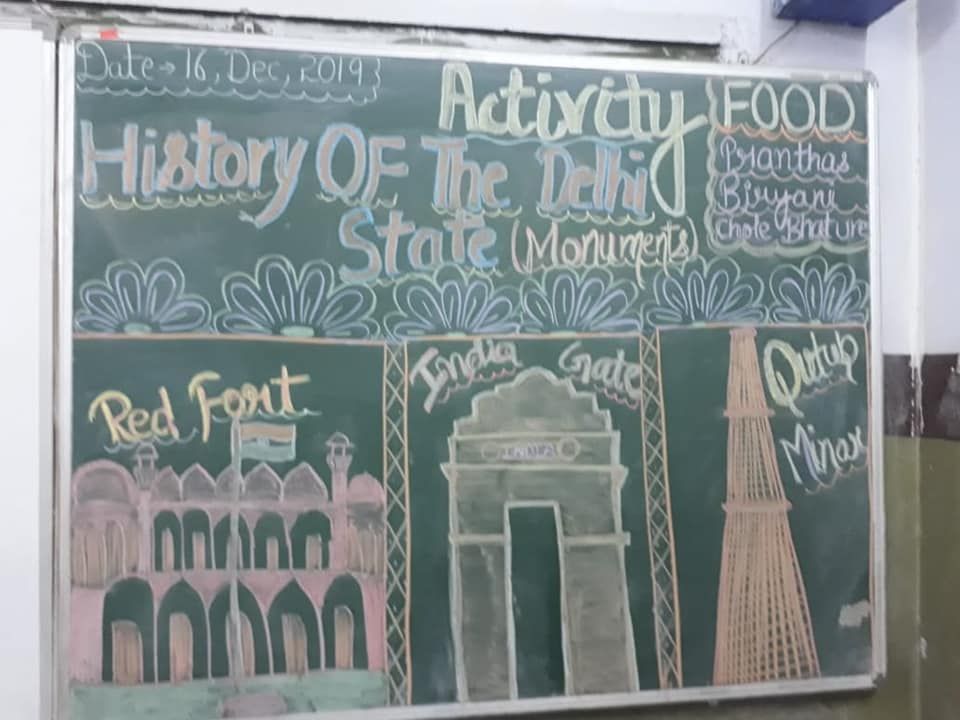 Date → 16, Dec, 2019
Activity
History OF The Delhi
State (Monuments)
FOOD
Pranthas
Biryani
Chole Bhature
Red Fort
India Gate
Qutub
Minar